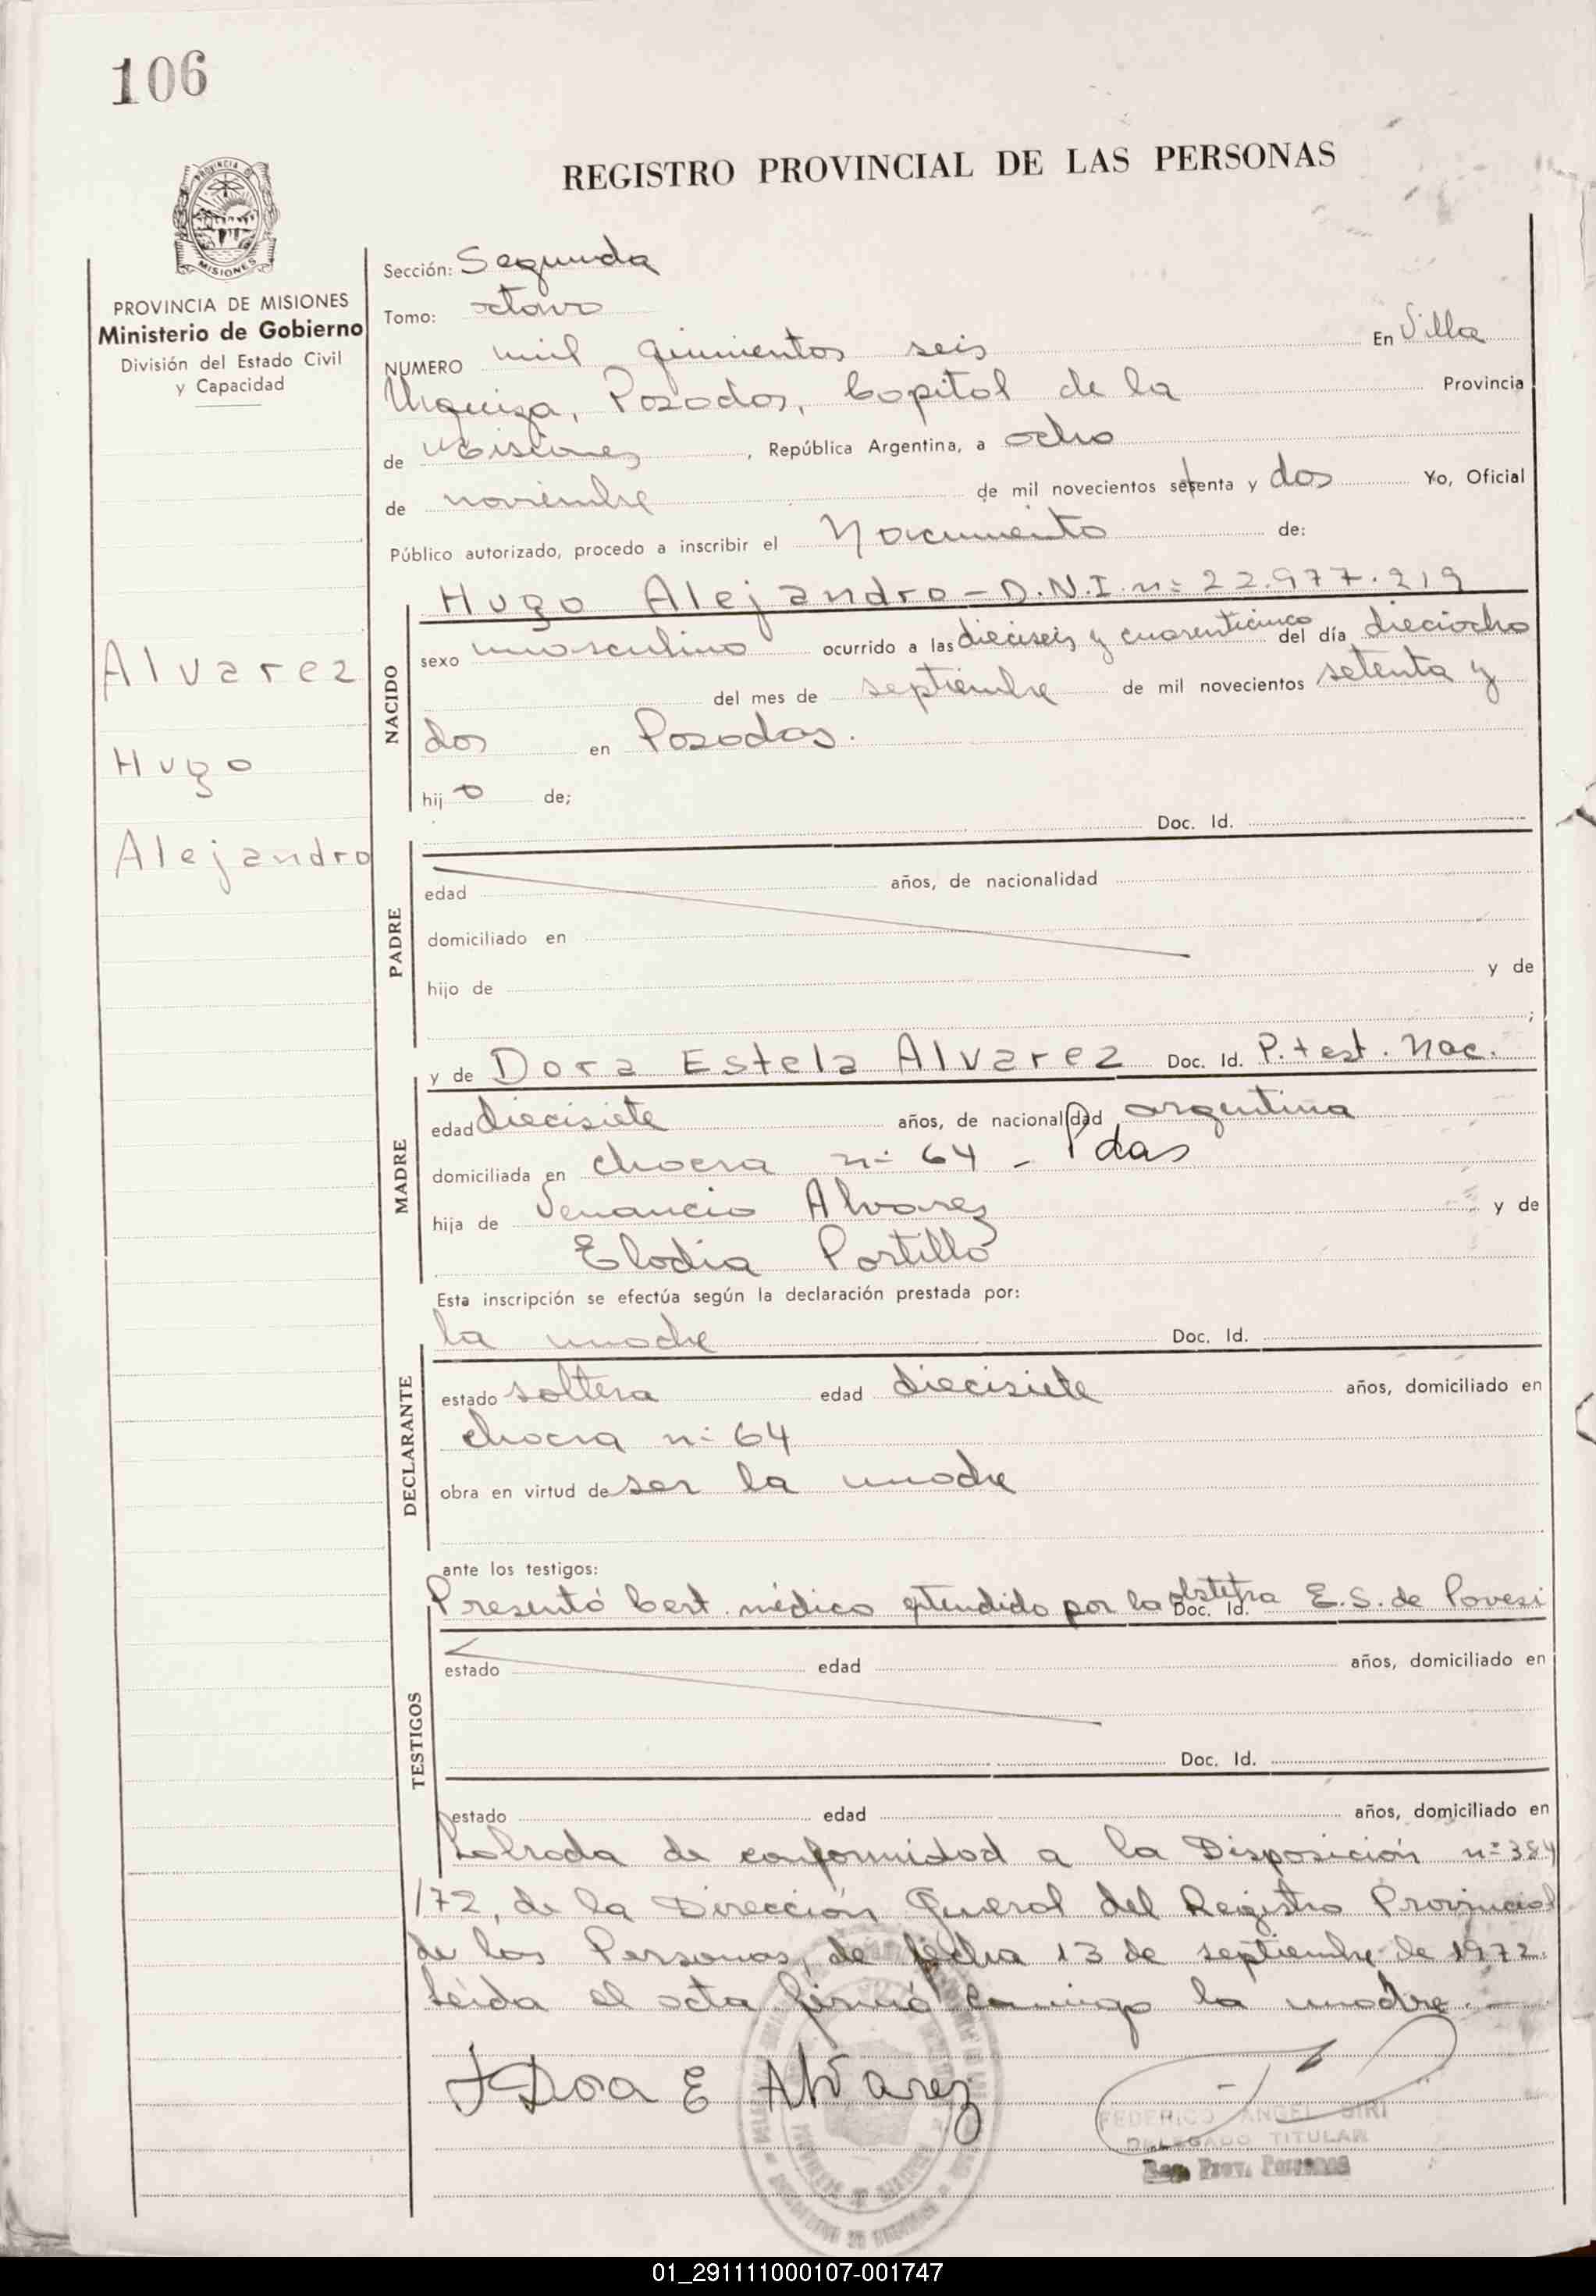 106
PROVINCIA DE
MISIONES
REGISTRO PROVINCIAL DE LAS PERSONAS
PROVINCIA DE MISIONES
Ministerio de Gobierno
División del Estado Civil
y Capacidad
Alvarez
Hugo
Alejandro
Sección: Segunda
Tomo: octavo
NUMERO mil quinientos seis En Villa
Urquiza, Posadas, Capital de la Provincia
de Misiones, República Argentina, a ocho
de noviembre de mil novecientos setenta y dos Yo, Oficial
Público autorizado, procedo a inscribir el Nacimiento de:
NACIDO
Hugo Alejandro - D.N.I. n: 22.977.219
sexo masculino ocurrido a las dieciseis y cuarenticinco del día dieciocho
del mes de septiembre de mil novecientos setenta y
dos en Posadas.
hijo de;
PADRE
Doc. Id.
edad años, de nacionalidad
domiciliado en
hijo de y de
;
MADRE
y de Dora Estela Alvarez Doc. Id. P. test. Nac.
edad diecisiete años, de nacionalidad argentina
domiciliada en chacra n: 64 - Pdas
hija de Venancio Alvarez y de
Elodia Portillo
Esta inscripción se efectúa según la declaración prestada por:
DECLARANTE
la madre Doc. Id.
estado soltera edad diecisiete años, domiciliado en
chacra n: 64
obra en virtud de ser la madre
ante los testigos:
TESTIGOS
Presentó Cert. médico extendido por la obstetra Doc. Id. E.S. de Povesi
estado edad años, domiciliado en
Doc. Id.
estado edad años, domiciliado en
Labrada de conformidad a la Disposición n: 384
/72, de la Dirección General del Registro Provincial
de las Personas, de fecha 13 de septiembre de 1972.
Leída el acta firmó conmigo la madre.-
Dora E Alvarez
FEDERICO ANGEL GIRI
DELEGADO TITULAR
Reg. Prov. Personas
01_291111000107-001747